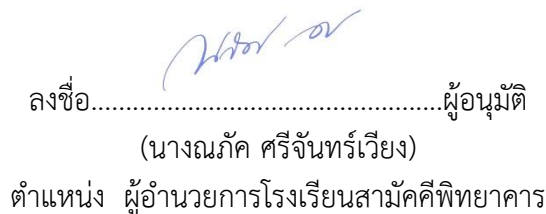 ลงชื่อ................................................ผู้อนุมัติ
(นางณภัค ศรีจันทร์เวียง)
ตำแหน่ง ผู้อำนวยการโรงเรียนสามัคคีพิทยาคาร